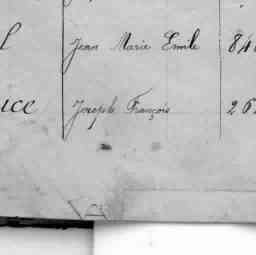 l Jean Marie Emile 84
uce Joseph François 26